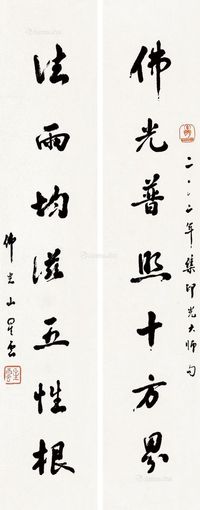 佛光普照十方界
二〇〇二年集印光大师句
法雨均滋五性根
佛光山星云